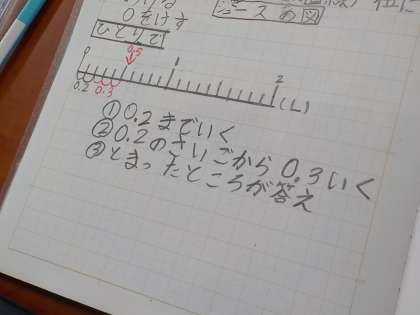 ジュースの図
ひとりで
0.5
0 1 2
0.2 0.3 (L)
①0.2までいく
②0.2のさいごから0.3いく
③とまったところが答え